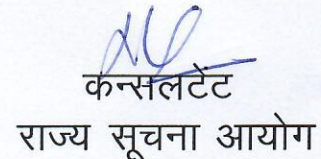 कन्सलटेंट
राज्य सूचना आयोग